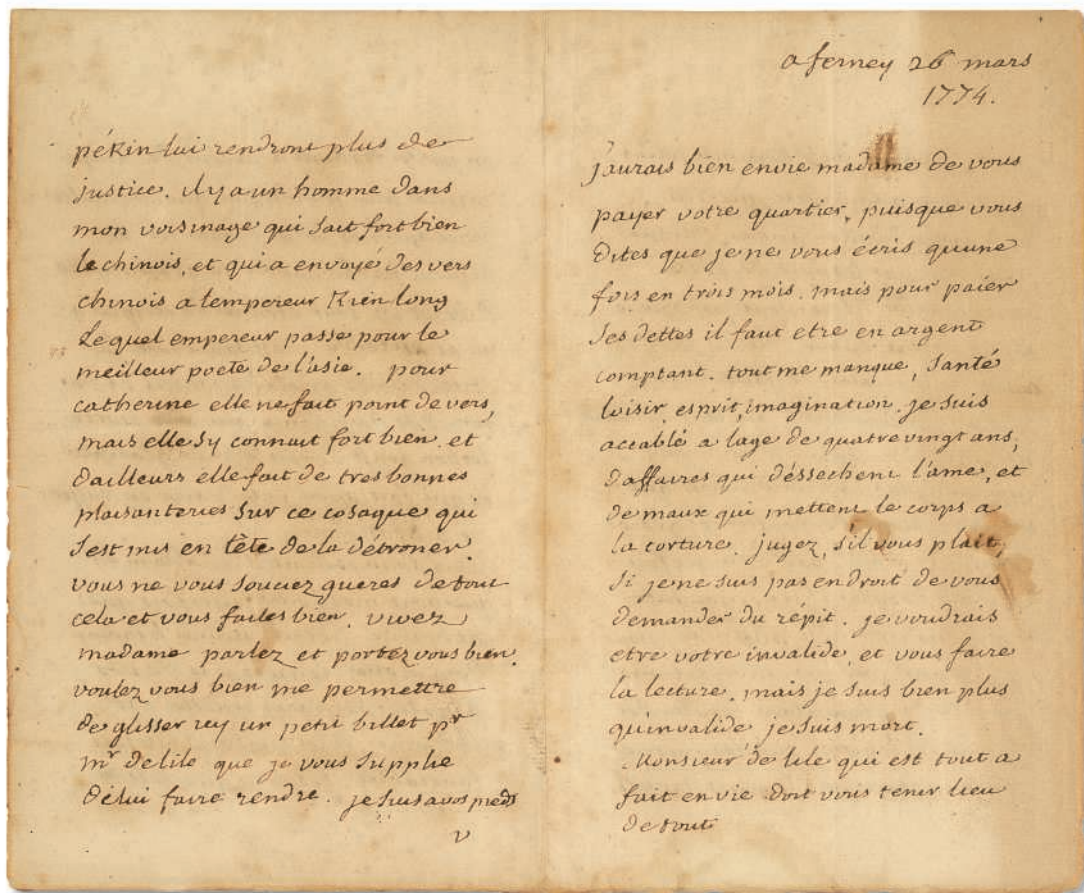 pékin lui rendront plus de
justice. il y a un homme dans
mon voisinage qui sait fort bien
le chinois, et qui a envoyé des vers
chinois a lempereur Kien long
Lequel empereur passe pour le
meilleur poete de l'asie. pour
catherine elle ne fait point de vers,
mais elle sy connait fort bien. et
dailleurs elle fait de tres bonnes
plaisanteries sur ce cosaque qui
sest mis en tète de la détroner.
vous ne vous souciez gueres de tout
cela et vous faites bien. vivez
madame parlez et portez vous bien.
voulez vous bien me permettre
de glisser icy un petit billet pr
mr delile que je vous supplie
de lui faire rendre. je suis a vos pieds
V
a ferney 26 mars
1774.
jaurais bien envie madame de vous
payer votre quartier, puisque vous
dites que je ne vous écris quune
fois en trois mois. mais pour paier
ses dettes il faut etre en argent
comptant. tout me manque, santé
loisir, esprit, imagination. je suis
accablé a lage de quatre vingt ans,
daffaires qui déssechent l'ame, et
de maux qui mettent le corps a
la torture. jugez, sil vous plait,
si je ne suis pas en droit de vous
demander du répit. je voudrais
etre votre invalide, et vous faire
la lecture. mais je suis bien plus
quinvalide je suis mort.
Monsieur de lile qui est tout a
fait en vie doit vous tenir lieu
de tout